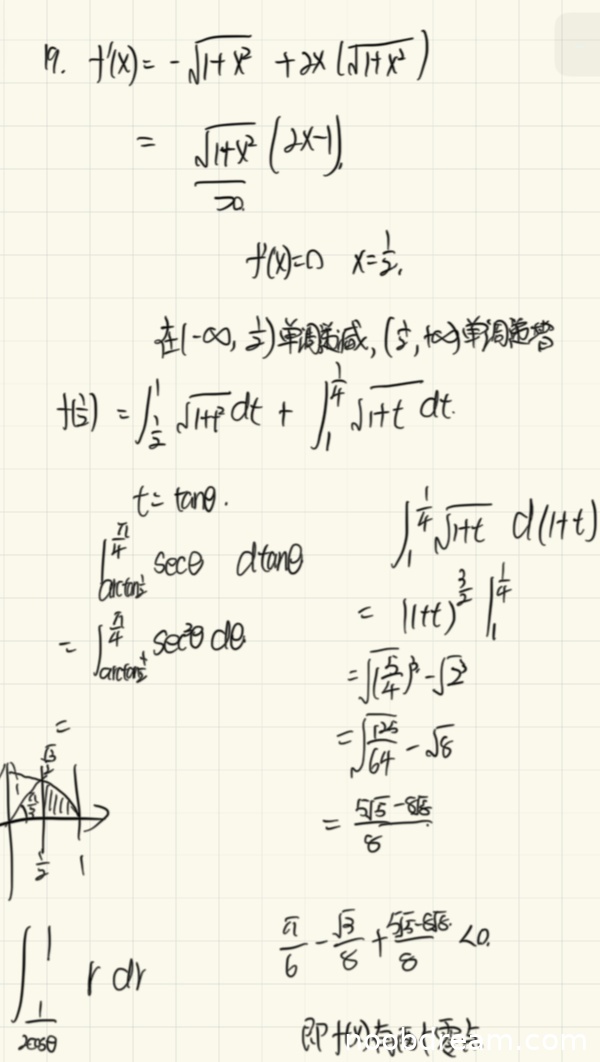 19. f'(x) = -√(1+x²) + 2x(√(1+x²))
= √(1+x²) (2x-1),
>0.
f'(x)=0 x=1/2.
在(-∞, 1/2)单调递减, (1/2, +∞)单调递增
f(1/2) = ∫_{1/2}^{1} √(1+t²) dt + ∫_{1}^{1/4} √(1+t) dt.
t = tanθ.
∫_{arctan 1/2}^{π/4} secθ dtanθ
= ∫_{arctan 1/2}^{π/4} sec³θ dθ
=
√3/2
1
π/3
1/2 1
∫_{1/(2cosθ)}^{1} r dr
∫_{1}^{1/4} √(1+t) d(1+t)
= (1+t)^{3/2} |_{1}^{1/4}
= √((5/4)³) - √2³
= √(125/64) - √8
= (5√5 - 8√8)/8
π/6 - √3/8 + (5√5-8√8)/8 <0.
即f(x)有
零点